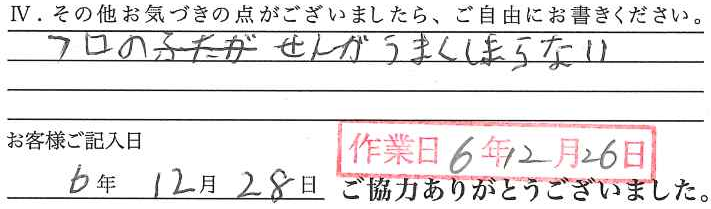 Ⅳ．その他お気づきの点がございましたら、ご自由にお書きください。
フロのふたが せんがうまくしまらない
お客様ご記入日
作業日 6年12月26日
6年 12月 28日 ご協力ありがとうございました。